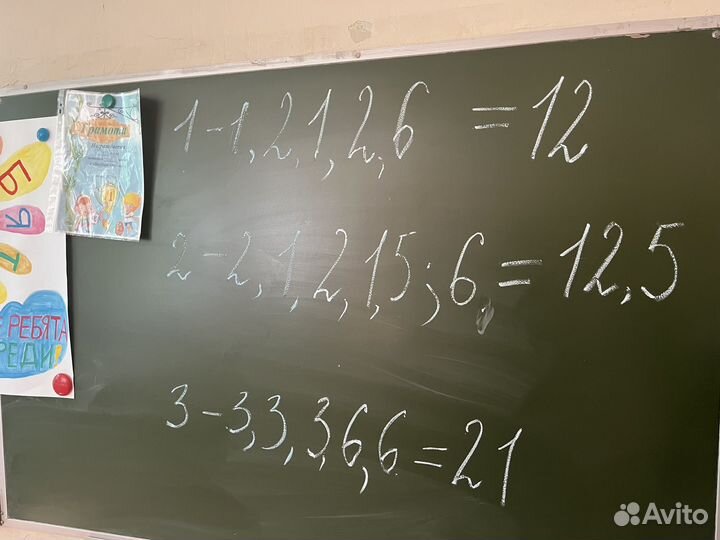 1 - 1, 2, 1, 2, 6 = 12
2 - 2, 1, 2, 1,5; 6 = 12,5
3 - 3, 3, 3, 6, 6 = 21
Грамота
Награждается
РЕБЯТА
РЕДИ
Avito